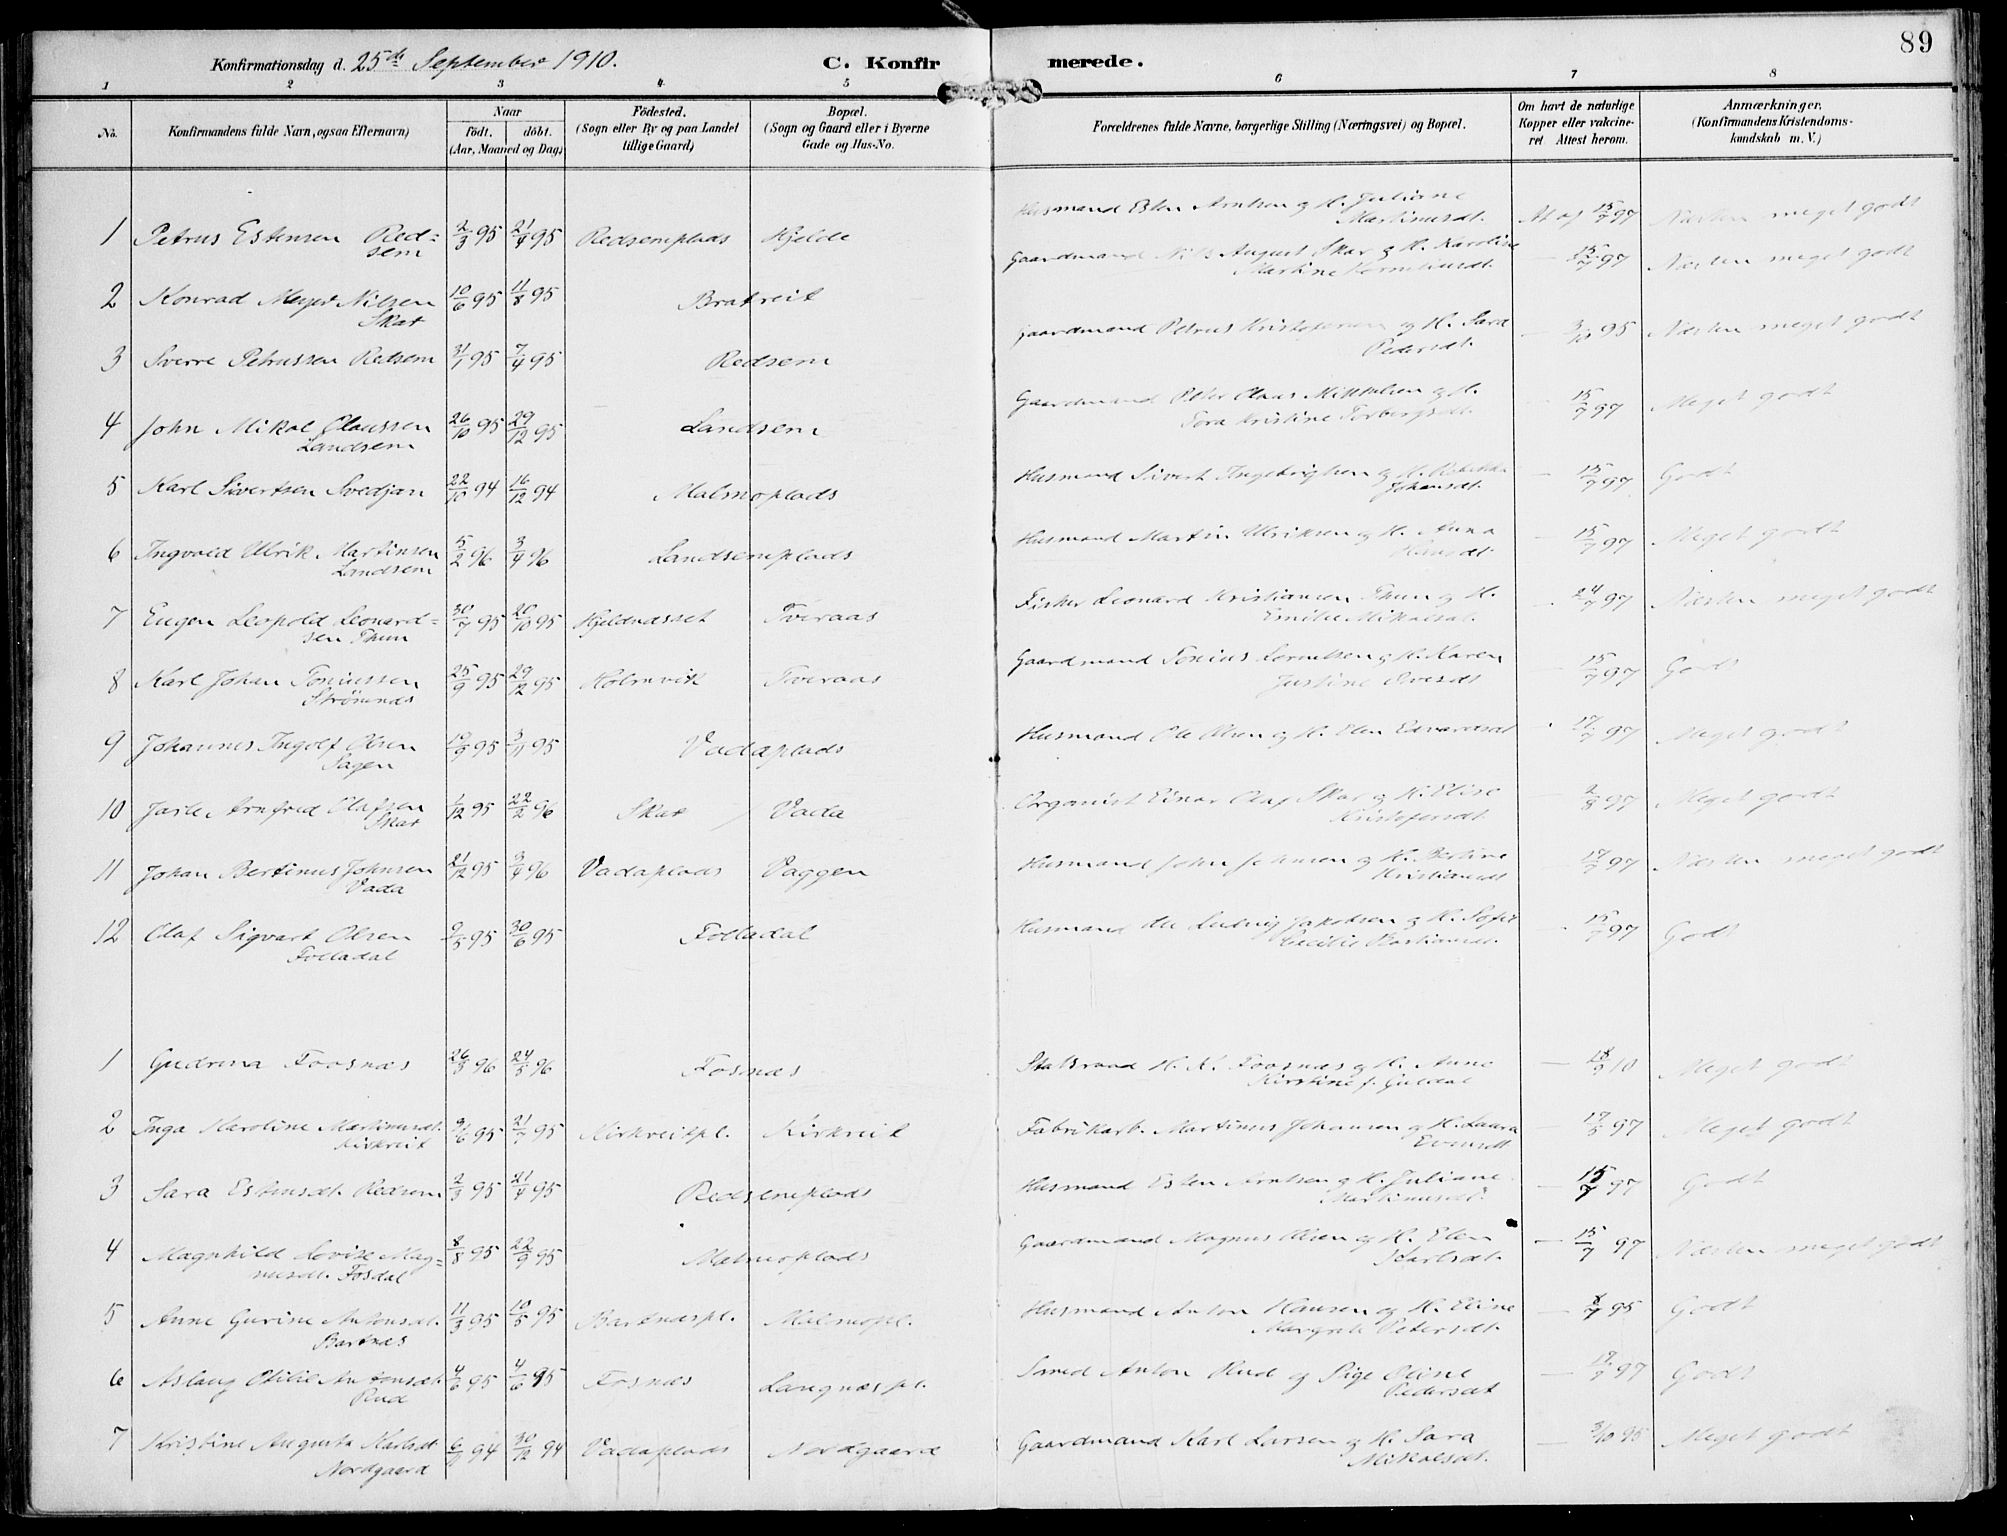 89
Konfirmationsdag d. 25de September 1910. C. Konfirmerede.
1 2 3 4 5 6 7 8
No.
Konfirmandens fulde Navn, ogsaa Efternavn)
Naar
födt. döbt.
(Aar, Maaned og Dag)
Födested.
(Sogn eller By og paa Landet
tillige Gaard)
Bopæl.
(Sogn og Gaard eller i Byerne
Gade og Hus-No.
Forældrenes fulde Navne, borgerlige Stilling (Næringsvei) og Bopæl.
Om havt de naturlige
Kopper eller vakcine-
ret Attest herom.
Anmærkninger.
(Konfirmandens Kristendoms-
kundskab m. V.)
1 Petrus Estensen Red= 2/3 95 21/4 95 Redsemplads Hjelde Husmand Esten Arntsen og H. Juliane At af 15/7 97 Næsten meget godt
sem Martinusdt.
2 Konrad Meyer Nilsen 10/6 95 11/8 95 Bratreit Gaardmand Nils August Skar og H. Karoline — 15/7 97 Næsten meget godt
Skar Martine
3 Sverre Petrussen Redsem 31/1 95 7/4 95 Redsem Gaardmand Petrus Kristofersen og H. Sara — 3/10 95 Næsten meget godt
Pedersdt.
4 John Mikal Claussen 26/10 95 29/12 95 Landsem Gaardmand Peter Claus Mikkelsen og H. — 15/7 97 Meget godt
Landsem Tora Kristine Torbergsdt.
5 Karl Sivertsen Svedjan 22/10 94 16/12 94 Malmoplads Husmand Sivert Ingebrigtsen og H. Rebekka — 15/7 97 Godt
Johansdt.
6 Ingvald Ulrik Martinsen 5/2 96 3/4 96 Landsemplads Husmand Martin Ulriksen og H. Anna — 15/7 97 Meget godt
Landsem Hansdt.
7 Eugen Leopold Leonard= 30/7 95 20/10 95 Hjeldnesset Tveraas Fisker Leonard Kristiansen Thun og H. — 24/7 97 Næsten meget godt
sen Thun Emilie Mikalsdt.
8 Karl Johan Toniussen 25/9 95 29/12 95 Holmvik Tveraas Gaardmand Tonius Cornelsen og H. Karen — 15/7 97 Godt
Strømnæs Justine Siversdt
9 Johannes Ingolf Olsen 19/9 95 3/11 95 Vadaplads Husmand Ole Olsen og H. Elen Edvardsdt 17/7 97 Meget godt
Hagen
10 Jarle Arnfred Olafsen 1/12 95 22/2 96 Skar / Vada Organist Einar Olaf Skar og H. Elise — 2/8 97 Meget godt
Skar Kristofersdt.
11 Johan Bertinus Johnsen 21/12 95 3/4 96 Vadaplads Vaggen Husmand John Johnsen og H. Bertine — 17/7 97 Næsten meget godt
Vada Kristiansdt
12 Olaf Sigvart Olsen 9/5 95 30/6 95 Folladal Husmand Ole Ludvig Jakobsen og H. Sofie 15/7 97 Godt
Folladal Cecilie Bastiansdt.
1 Gudruna Foosnæs 26/3 96 24/5 96 Fosnæs Statsraad H. K. Foosnæs og H. Anne — 18/9 10 Meget godt
Kirstine f. Guldal
2 Inga Karoline Martinusdt. 9/6 95 21/7 95 Kirkreitpl. Kirkreit Fabrikarb. Martinus Johansen og H. Laura — 17/5 97 Meget godt
Kirkreit Evensdt
3 Sara Estensdt. Redsem 2/3 95 21/4 95 Redsemplads Husmand Esten Arntsen og H. Juliane — 15/7 97 Godt
Martinusdt.
4 Magnhild Lovise Mag= 8/8 95 22/9 95 Malmoplads Gaardmand Magnus Olsen og H. Elen — 15/7 97 Næsten meget godt
nusdt. Fosdal Karlsdt.
5 Anne Gurine Antonsdt. 11/3 95 10/5 95 Bartnæspl. Malmopl. Husmand Anton Hansen og H. Eline — 8/7 95 Godt
Bartnæs Margrete Petersdt.
6 Aslaug Otilie Antonsdt. 4/6 95 4/6 95 Fosnæs Langnæspl. Smed Anton Rud og Pige Oline — 17/7 97 Godt
Rud Pedersdt
7 Kristine Augusta Karlsdt. 6/9 94 30/12 94 Vadaplads Nordgaard Gaardmand Karl Larsen og H. Sara — 3/10 95 Meget godt
Nordgaard Mikalsdt.